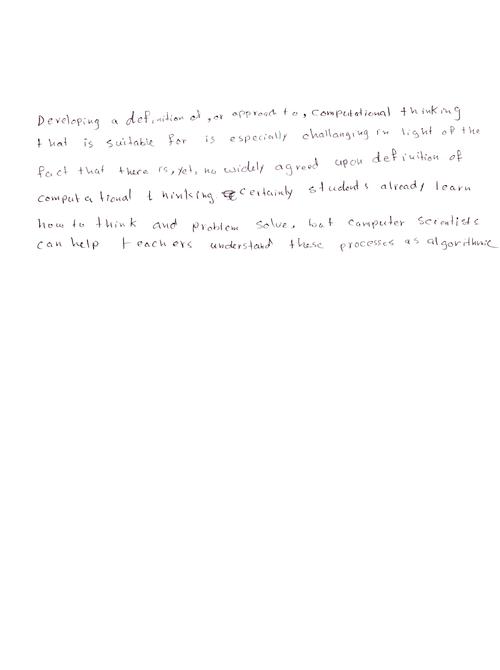 Developing a definition of, or approach to, computational thinking
that is suitable for is especially challanging in light of the
fact that there is, yet, no widely agreed upon definition of
computational thinking certainly students already learn
how to think and problem solve, but computer scientists
can help teachers understand these processes as algorithmic